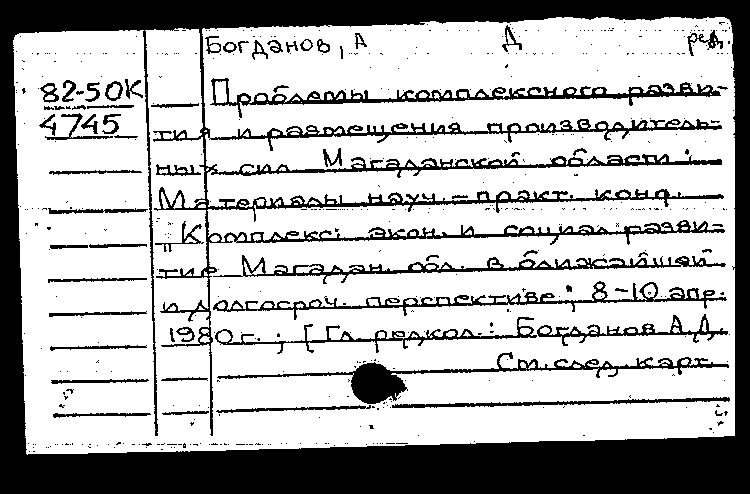 Богданов, А Д ред.
82-50К Проблемы комплексного разви-
4745 тия и размещения производитель-
ных сил Магаданской области:
Материалы науч.-практ. конф.
"Комплекс. экон. и социал. разви-
тие Магадан. обл. в ближайшей
и долгосроч. перспективе; 8-10 апр.
1980 г.; [Гл. редкол.: Богданов А.Д.
См. след. карт.